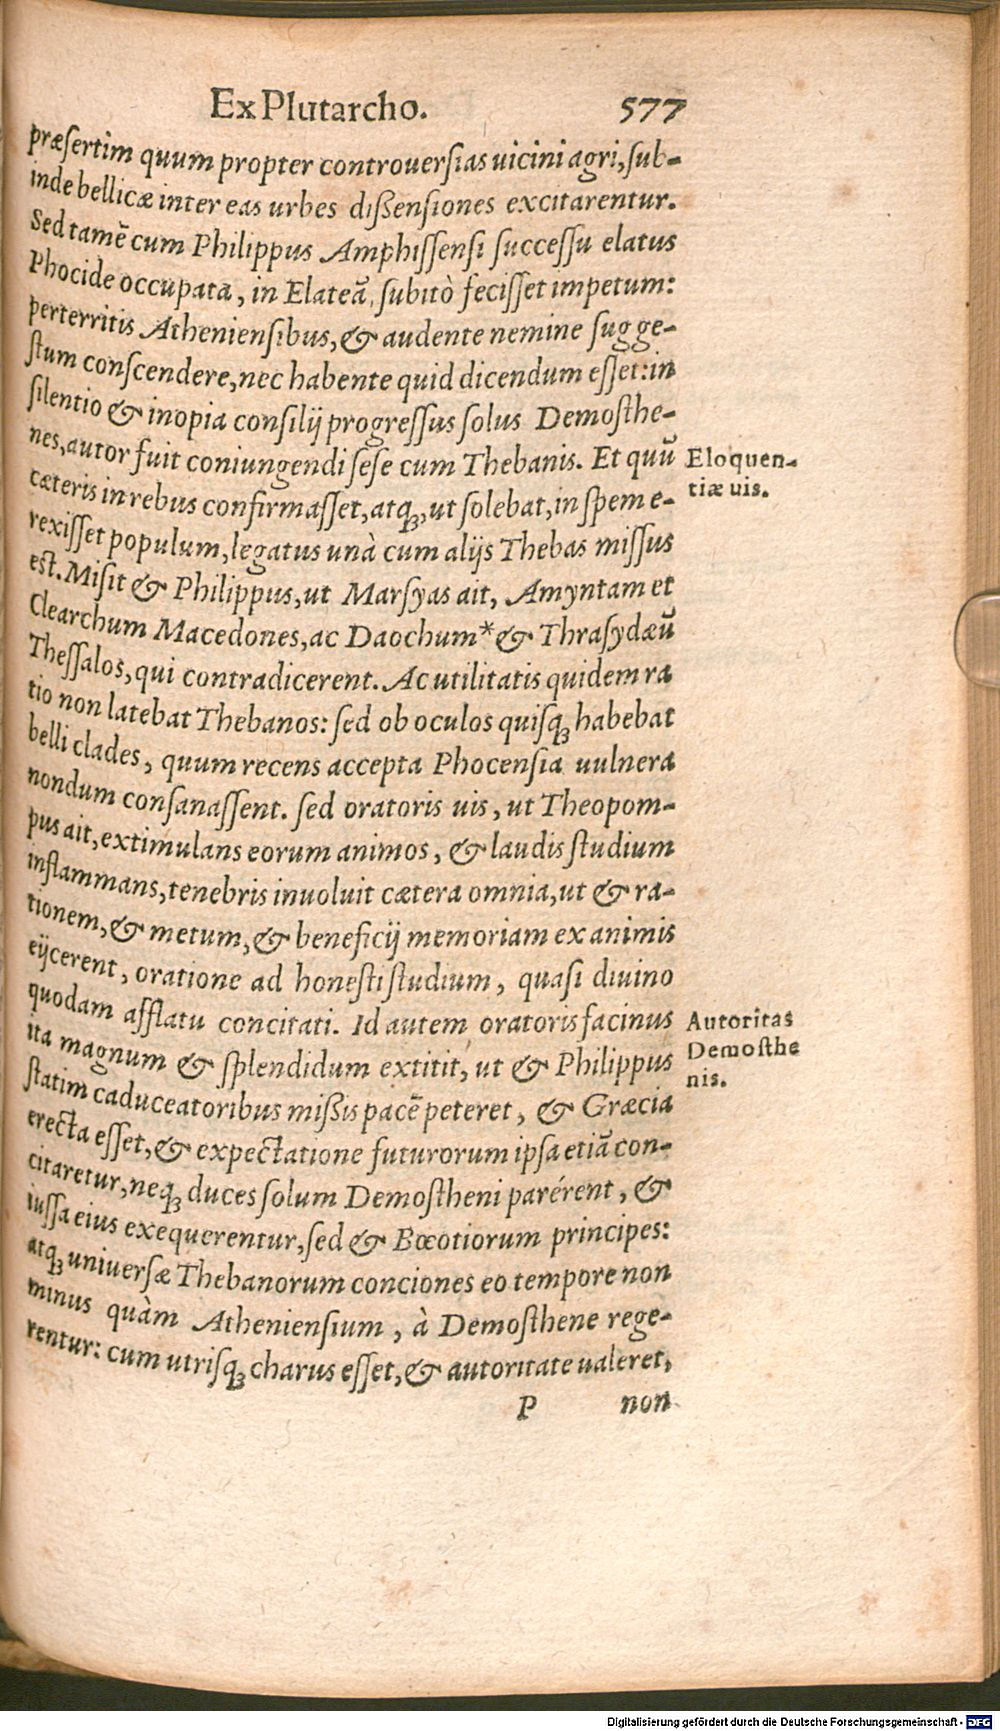 Ex Plutarcho. 577
præſertim quum propter controuerſias uicini agri, ſub-
inde bellicæ inter eas urbes dißenſiones excitarentur.
Sed tamē cum Philippus Amphiſſenſi ſucceſſu elatus
Phocide occupata, in Elateā ſubitò feciſſet impetum:
perterritis Athenienſibus, & audente nemine ſugge-
ſtum conſcendere, nec habente quid dicendum eſſet: in
ſilentio & inopia conſilij progreſſus ſolus Demoſthe-
nes, autor fuit coniungendi ſeſe cum Thebanis. Et quū
cæteris in rebus confirmaſſet, atq;, ut ſolebat, in ſpem e-
rexiſſet populum, legatus unà cum alijs Thebas miſſus
eſt. Miſit & Philippus, ut Marſyas ait, Amyntam et
Clearchum Macedones, ac Daochum* & Thraſydæū
Theſſalos, qui contradicerent. Ac utilitatis quidem ra
tio non latebat Thebanos: ſed ob oculos quiſq; habebat
belli clades, quum recens accepta Phocenſia uulnera
nondum conſanaſſent. ſed oratoris uis, ut Theopom-
pus ait, extimulans eorum animos, & laudis ſtudium
inflammans, tenebris inuoluit cætera omnia, ut & ra-
tionem, & metum, & beneficij memoriam ex animis
eijcerent, oratione ad honeſti ſtudium, quaſi diuino
quodam afflatu concitati. Id autem oratoris facinus
ita magnum & ſplendidum extitit, ut & Philippus
ſtatim caduceatoribus mißis pacē peteret, & Græcia
erecta eſſet, & expectatione futurorum ipſa etiā con-
citaretur, neq; duces ſolum Demoſtheni parérent, &
iuſſa eius exequerentur, ſed & Bœotiorum principes:
atq; uniuerſæ Thebanorum conciones eo tempore non
minus quàm Athenienſium, à Demoſthene rege-
rentur: cum utriſq; charus eſſet, & autoritate ualeret,
P non
Eloquen-
tiæ uis.
Autoritas
Demoſthe
nis.
Digitalisierung gefördert durch die Deutsche Forschungsgemeinschaft - DFG